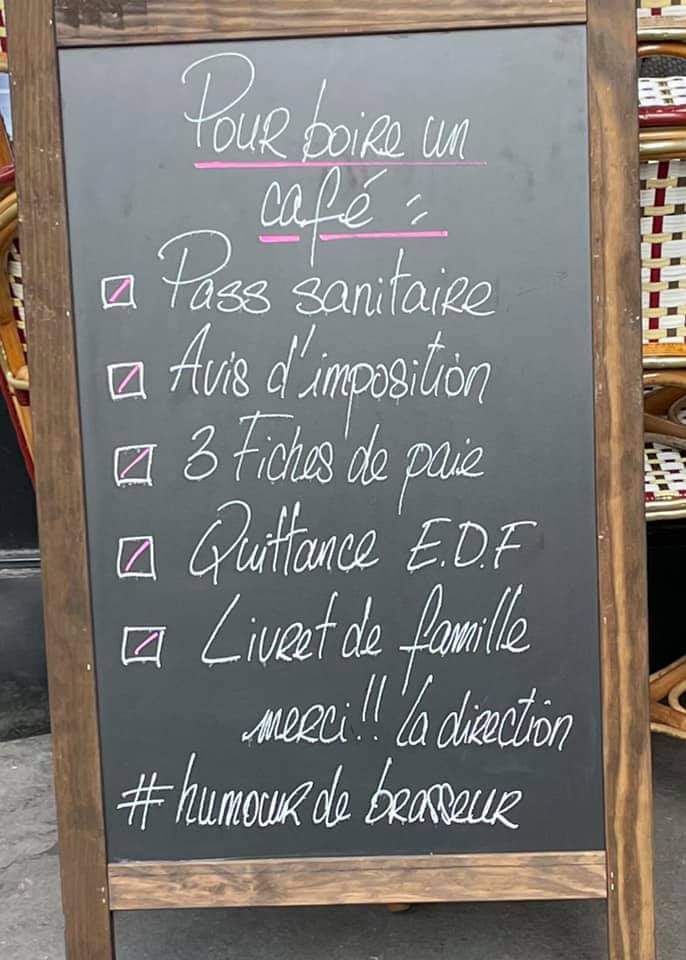 Pour boire un
café :
Pass sanitaire
Avis d'imposition
3 Fiches de paie
Quittance E.D.F
Livret de famille
merci!! La direction
#humour de brasseur